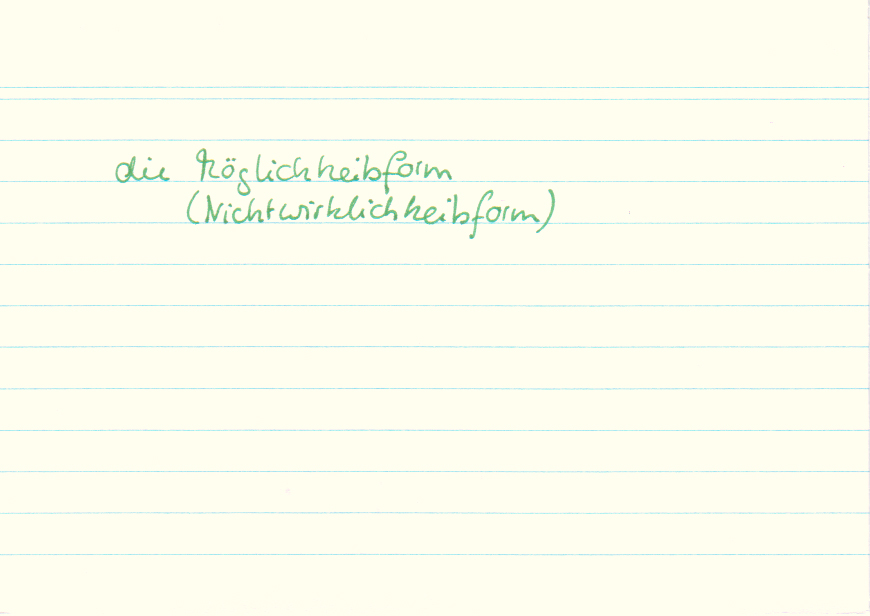 die Möglichkeitsform
(Nichtwirklichkeitsform)